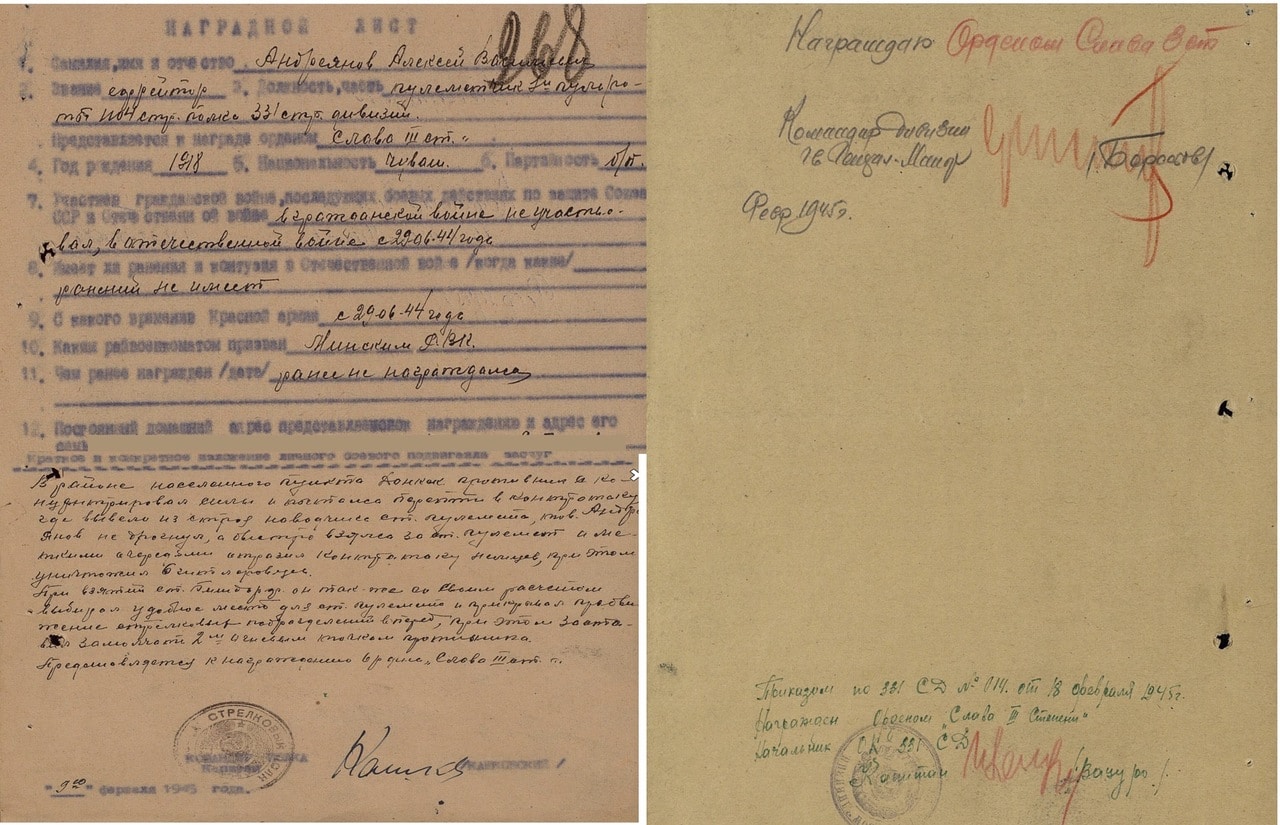 НАГРАДНОЙ ЛИСТ
268
1. Фамилия, имя и отчество Андреянов Алексей
2. Звание ефрейтор 3. Должность, часть пулеметчик
1104 стр. полка 331 стр. дивизии.
Представляется к награде орденом "Слава III ст."
4. Год рождения 1918 5. Национальность чуваш. 6. Партийность б/п.
7. Участие в гражданской войне, последующих боевых действиях по защите Союза
ССР и Отечественной войне в гражданской войне не участво-
вал, в отечественной войне с 29.06.44 года
8. Имеет ли ранения и контузия в Отечественной войне /когда какие/
ранений не имеет
9. С какого времени в Красной армии с 29.06.44 года
10. Каким райвоенкоматом призван Минским РВК.
11. Чем ранее награжден /дата/ ранее не награждался
12. Постоянный домашний адрес представляемого к награждению и адрес его
семьи
Краткое и конкретное изложение личного боевого подвига или заслуг
В районе населенного пункта противник ско-
нцентрировал силы и пытался перейти в контратаку
где вывело из строя наводчика ст. пулемета, тов. Андре-
янов не дрогнул, а быстро взялся за ст. пулемет и ме-
ткими очередями отразил контратаку немцев, при этом
уничтожил 6 гитлеровцев.
При взятии ст. он так-же со своим расчетом
выбирал удобное место для ст. пулемета и прикрывал продви-
жение стрелковых подразделений вперед, при этом заста-
вил замолчать 2м огневым точкам противника.
Представляется к награждению орденом "Слава III ст."
СТРЕЛКОВЫЙ
КОМАНДИР ПОЛКА
"9го" февраля 1945 года.
Награждаю Орденом Слава 3 ст
Командир дивизии
гв Генерал-Майор /Берестов/
Февр 1945г.
Приказом по 331 СД № 014. от 18 февраля 1945г.
Награжден Орденом "Слава III Степени"
Начальник 331 СД
Капитан /Вакуро/